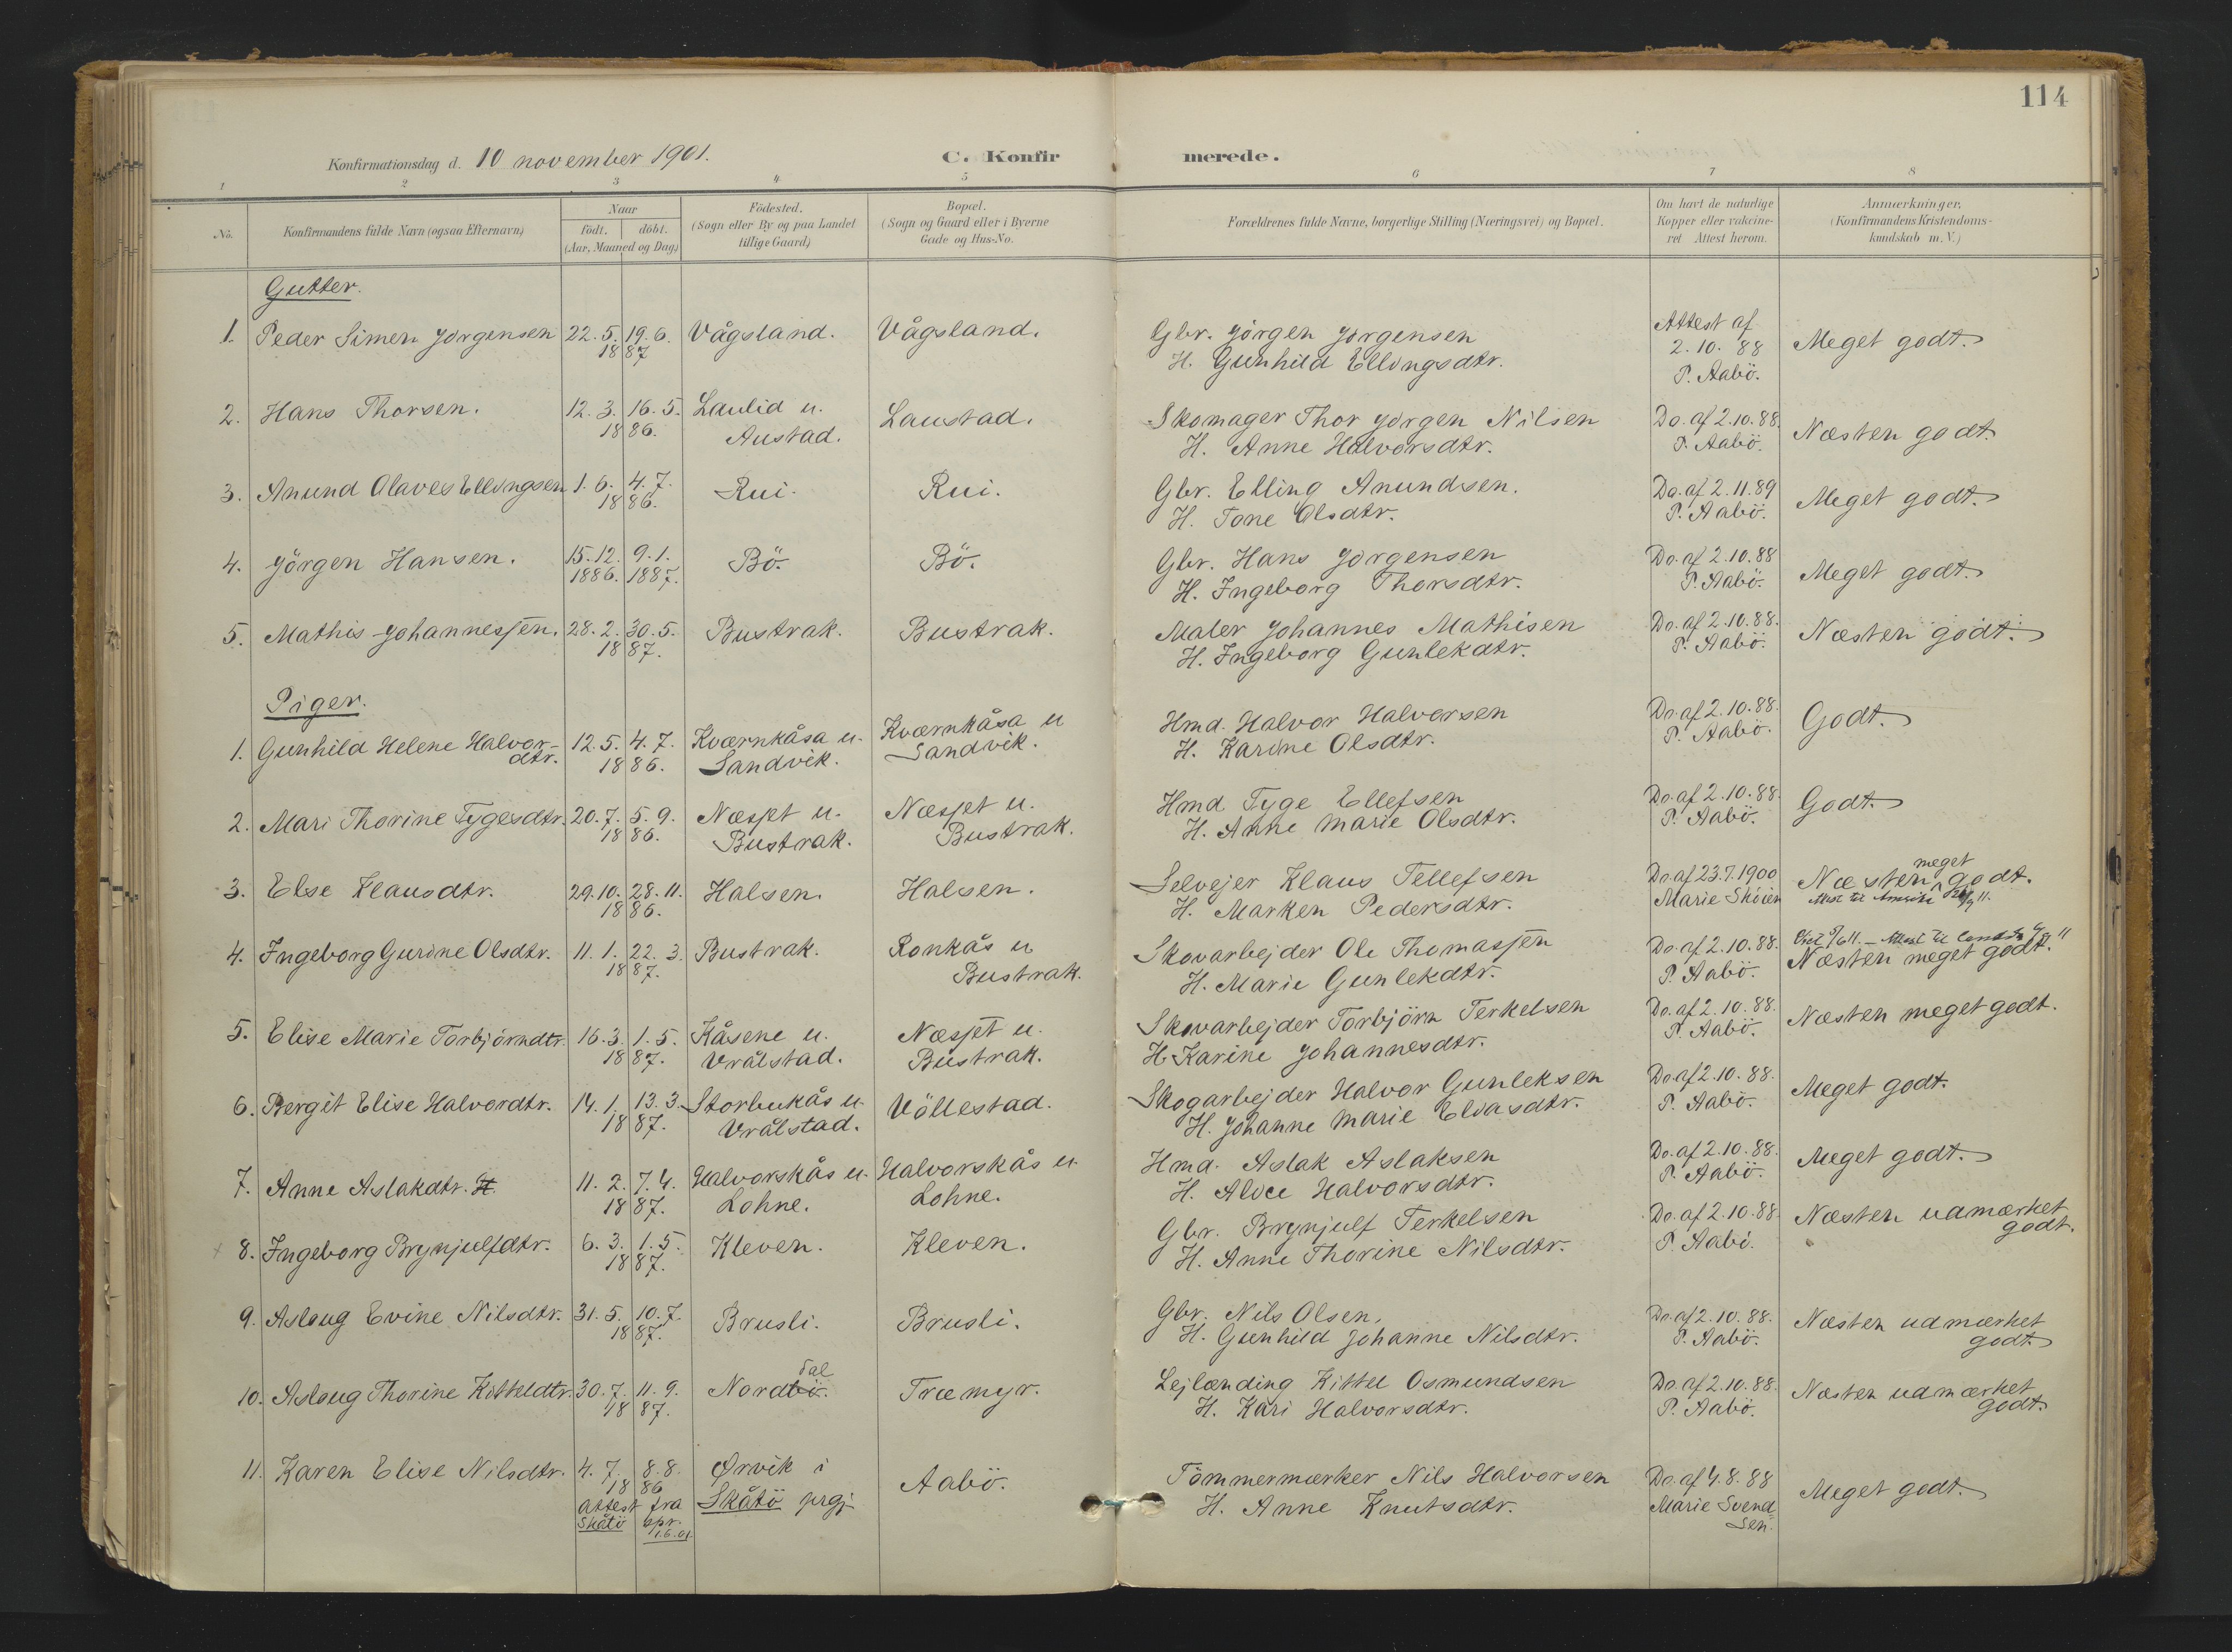 114
Konfirmationsdag d. 10 november 1901.
C. Konfir merede.
1 2 3 4 5 6 7 8
No.
Konfirmandens fulde Navn (ogsaa Efternavn)
Naar
født. døbt.
(Aar, Maaned og Dag)
Fødested.
(Sogn eller By og paa Landet
tillige Gaard)
Bopæl.
(Sogn og Gaard eller i Byerne
Gade og Hus-No.
Forældrenes fulde Navne, borgerlige Stilling (Næringsvei) og Bopæl.
Om havt de naturlige
Kopper eller vakcine-
ret Attest herom.
Anmærkninger.
(Konfirmandens Kristendoms-
kundskab m.V.)
Gutter.
1. Peder Simen Jörgensen 22.5. 19.6. Vågsland. Vågsland. Gbr. Jörgen Jörgensen Attest af Meget godt.
1887 H. Gunhild Ellingsdtr. 2.10. 88
P. Aabö.
2. Hans Thorsen. 12.3. 16.5. Laulid u. Laustad. Skomager Thor Jörgen Nilsen Do. af 2.10.88. Næsten godt.
1886. Austad. H. Anne Halvorsdtr. P. Aabö.
3. Anund Olaves Ellingsen 1.6. 4.7. Rui. Rui. Gbr. Elling Anundsen. Do. af 2.11.89 Meget godt.
1886. H. Tone Olsdtr. P. Aabö.
4. Jörgen Hansen. 15.12. 9.1. Bö. Bö. Gbr. Hans Jörgensen Do. af 2.10.88 Meget godt.
1886. 1887. H. Ingeborg Thorsdtr. P. Aabö.
5. Mathis Johannessen. 28.2. 30.5. Bustrak. Bustrak. Maler Johannes Mathisen Do. af 2.10.88. Næsten godt.
1887. H. Ingeborg Gunlekdtr. P. Aabö.
Piger.
1. Gunhild Helene Halvor- 12.5. 4.7. Kværnkåsa u. Kværnkåsa u Hmd. Halvor Halvorsen Do. af 2.10.88. Godt.
dtr. 1886. Sandvik. Sandvik. H. Karine Olsdtr. P. Aabö.
2. Mari Thorine Tygesdtr. 20.7. 5.9. Næsset u. Næsset u. Hmd. Tyge Ellefsen Do. af 2.10.88. Godt.
1886. Bustrak. Bustrak. H. Anne Marie Olsdtr. P. Aabö.
3. Else Klausdtr. 29.10. 28.11. Halsen. Halsen. Selvejer Klaus Tellefsen Do. af 23.7.1900 Næsten meget godt.
1886. H. Marken Pedersdtr. Marie Sköien Attest til Amerika 11.
4. Ingeborg Gurine Olsdtr. 11.1. 22.3. Bustrak. Ronkås u Skovarbejder Ole Thomassen Do. af 2.10.88. Attest til
1887. Bustrak. H. Marie Gunlekdtr. P. Aabö. Næsten meget godt.
5. Elise Marie Torbjörndtr. 16.3. 1.5. Kåsene u. Næsset u. Skovarbejder Torbjörn Terkelsen Do. af 2.10.88. Næsten meget godt.
1887. Vrålstad. Bustrak. H. Karine Johannesdtr. P. Aabö.
6. Bergit Elise Halvordtr. 14.1. 13.3. Storbukås u. Völlestad. Skogarbejder Halvor Gunleksen Do. af 2.10.88. Meget godt.
1887. Vrålstad. H. Johanne Marie Eliasdtr. P. Aabö.
7. Anne Aslakdtr. 11.2. 7.4. Halvorskås u. Halvorskås u. Hmd. Aslak Aslaksen Do. af 2.10.88. Meget godt.
1887. Lohne. Lohne. H. Alice Halvorsdtr. P. Aabö.
8. Ingeborg Brynjulfdtr. 6.3. 1.5. Kleven. Kleven. Gbr. Brynjulf Terkelsen Do. af 2.10.88. Næsten udmærket
1887. H. Anne Thorine Nilsdtr. P. Aabö. godt.
9. Aslaug Evine Nilsdtr. 31.5. 10.7. Brusli. Brusli. Gbr. Nils Olsen. Do. af 2.10.88. Næsten udmærket
1887. H. Gunhild Johanne Nilsdtr. P. Aabö. godt.
10. Aslaug Thorine Kitteldtr. 30.7. 11.9. Nordbö. dal Træmyr. Lejlænding Kittel Osmundsen Do. af 2.10.88. Næsten udmærket
1887. H. Kari Halvorsdtr. P. Aabö. godt.
11. Karen Elise Nilsdtr. 4.7. 8.8. Ørvik i Aabö. Tömmermærker Nils Halvorsen Do. af 4.8.88 Meget godt.
1886 Skåtö prgj. H. Anne Knutsdtr. Marie Svend-
attest fra sen.
Skåtö spr.
1.6.01